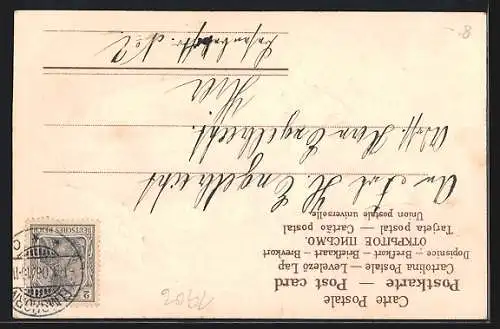 Carte Postale
Postkarte — Post card
Cartolina Postale — Levelező Lap
Dopisnice — Brefkort — Briefkaart — Brevkort
ОТКРЫТОЕ ПИСЬМО.
Tarjeta postal — Cartão postal
Union postale universelle
An Frl. H. Engelbrecht
Adr. Herrn Engelbrecht.
Hier
No 2
DEUTSCHES REICH
2
ELMSHORN
1906
8